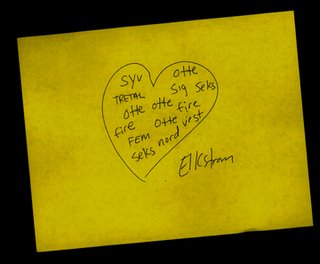 SYV Otte
TRETAL Sig Seks
Otte otte fire
fire Otte vest
FEM nord
Seks
Elkstrom